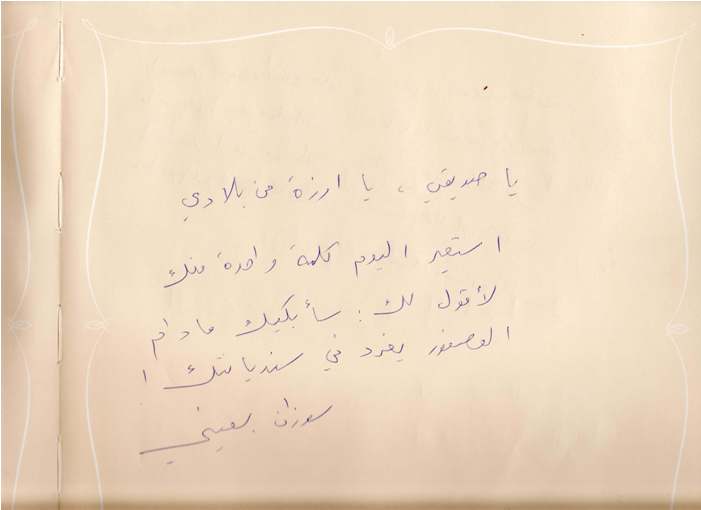 يا صديقي ، يا ارزة من بلادي
استعير اليوم كلمة واحدة منك
لأقول لك : سأبكيك مادام
العصفور يغرد في سنديانتك !
سوزان بعيني